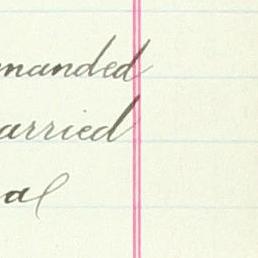 manded
arried
al